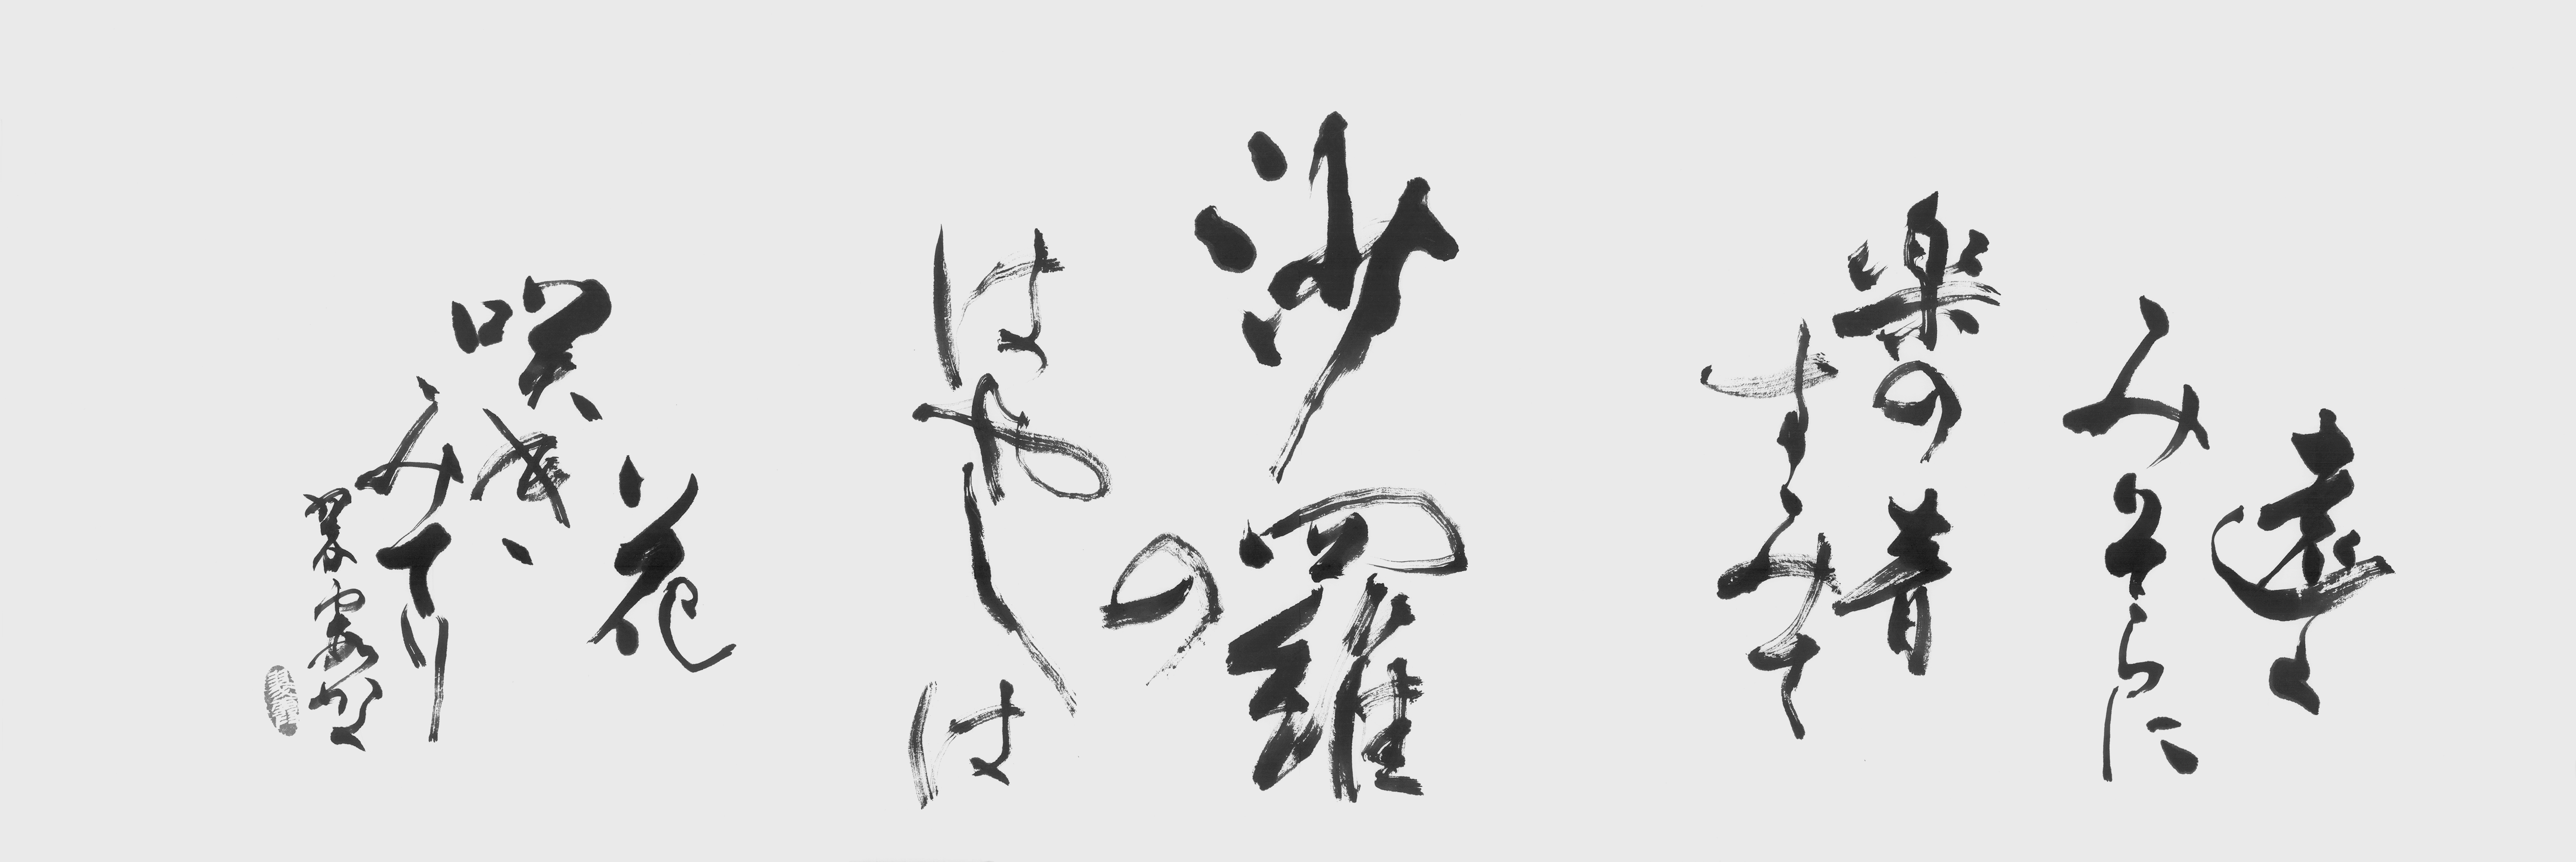 遠
みそらに
楽の音
すみて
沙羅
の
はやしは
花
咲き
みてり